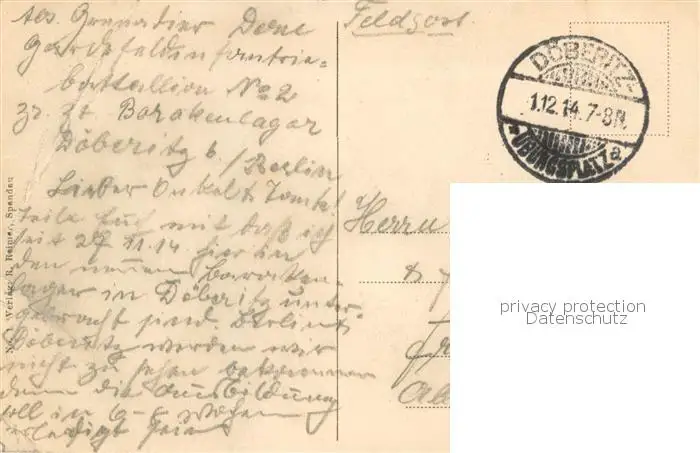 Abs. Grenadier Dorn
Gardefeldinfantrie=
battallion No 2
zr. zt. Barakenlager
Döberitz b./Berlin
Lieber Onkel & Tante!
teile Euch mit daß ich
seit 27.11.14. hier in
den neuen Baracken-
lager in Döberitz unter-
gebracht sind. Berlin &
Döberitz werden wir
nicht zu sehen bekommen
denn die Ausbildung
soll in 6-8 Wochen
erledigt sein
No. 1 Verlag: R. Reimer, Spandau
Feldpost.
DÖBERITZ-
1.12.14.7-8N.
* ÜBUNGSPLATZ a
Herrn
privacy protection
Datenschutz